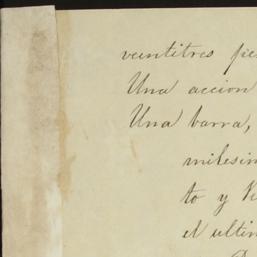 veintitres pe
Una accion
Una barra,
milesim
to y V
el ultim